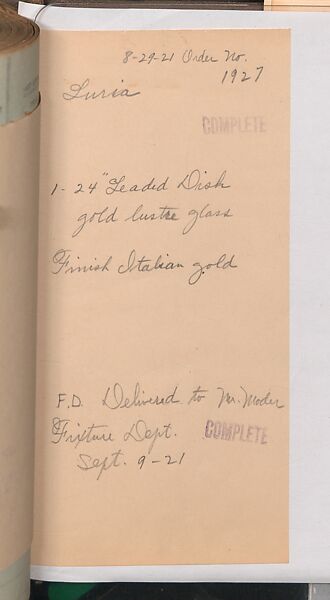 8-29-21 Order No.
1927
Luria
COMPLETE
1 - 24" Leaded Dish
gold lustre glass
Finish Italian gold
F.D. Delivered to Mr. Moder
Fixture Dept.
COMPLETE
Sept. 9-21